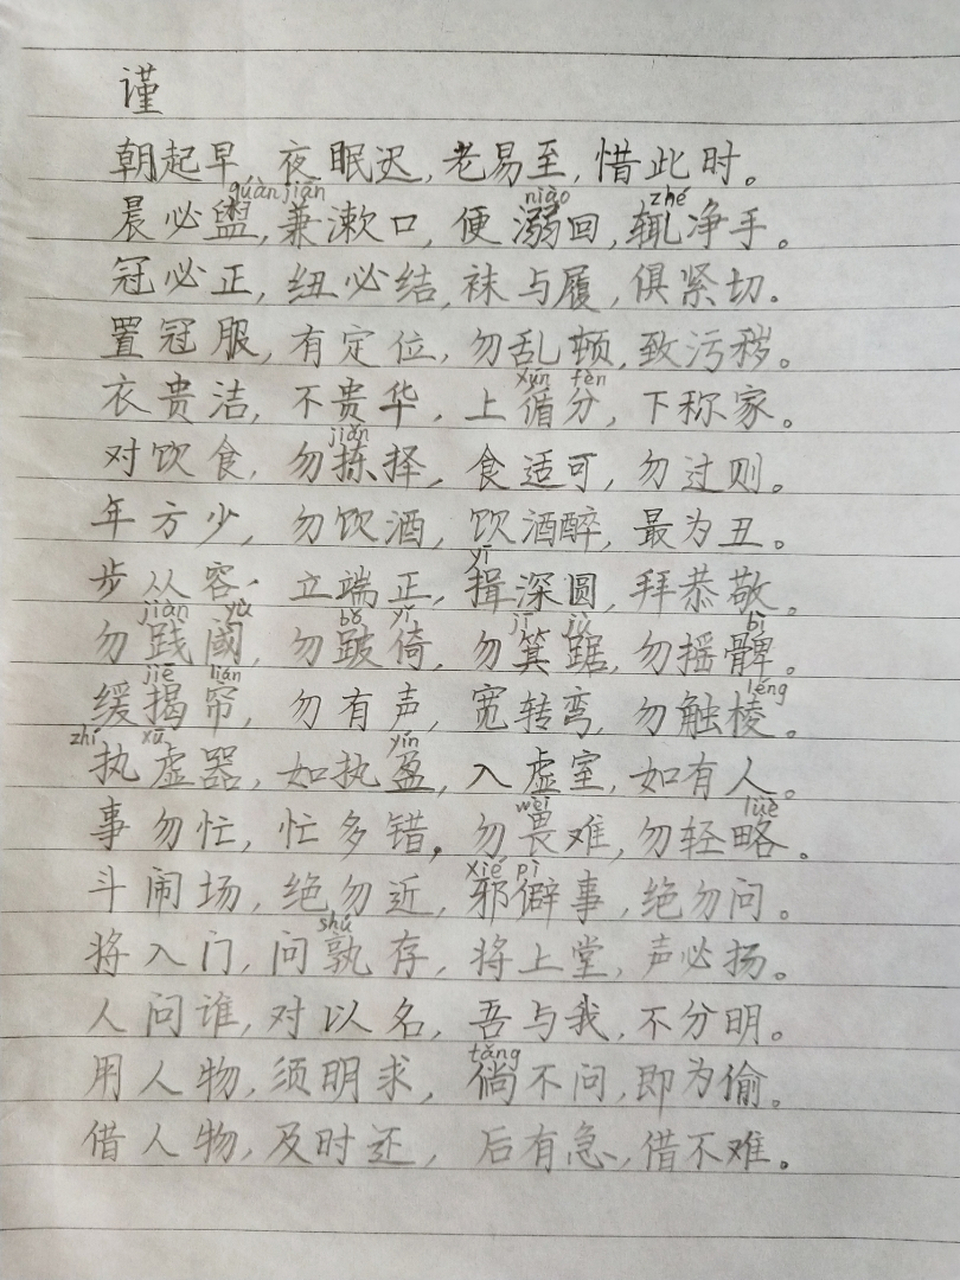 谨
朝起早,夜眠迟,老易至,惜此时。
guàn jiān niào zhé
晨必盥,兼漱口,便溺回,辄净手。
冠必正,纽必结,袜与履,俱紧切。
置冠服,有定位,勿乱顿,致污秽。
xún fèn
衣贵洁,不贵华,上循分,下称家。
jiǎn
对饮食,勿拣择,食适可,勿过则。
年方少,勿饮酒,饮酒醉,最为丑。
yī
步从容,立端正,揖深圆,拜恭敬。
jiàn yù bǒ yǐ jī jù bì
勿践阈,勿跛倚,勿箕踞,勿摇髀。
jiē lián léng
缓揭帘,勿有声,宽转弯,勿触棱。
zhí xū yín
执虚器,如执盈,入虚室,如有人。
wèi lüè
事勿忙,忙多错,勿畏难,勿轻略。
xié pì
斗闹场,绝勿近,邪僻事,绝勿问。
shú
将入门,问孰存,将上堂,声必扬。
人问谁,对以名,吾与我,不分明。
tǎng
用人物,须明求,倘不问,即为偷。
借人物,及时还,后有急,借不难。